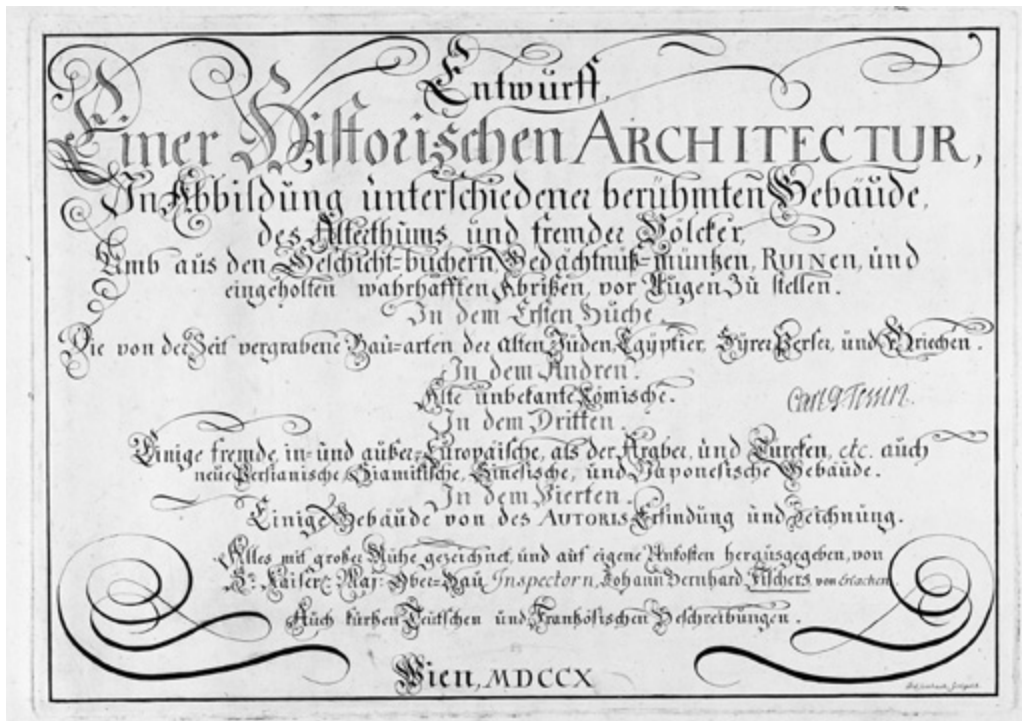 Entwurff,
Einer Historischen ARCHITECTUR,
In Abbildung unterschiedener berühmten Gebäude,
des Alterthums und fremder Völcker,
Umb aus den Geschicht=büchern, Gedächtnüß=müntzen, RUINEN, und
eingeholten wahrhafften Abrißen, vor Augen zu stellen.
In dem Ersten Buche.
Die von der Zeit vergrabene Bau=arten der alten Jüden, Egÿptier, Sÿrer, Perser, und Griechen.
In dem Andren.
Alte unbekante Römische.
Carl G Tessin
In dem Dritten.
Einige fremde, in= und außer=Europäische, als der Araber, und Türcken, etc. auch
neue Persianische, Siamitische, Sinesische, und Japonesische Gebäude.
In dem Vierten.
Einige Gebäude von des AUTORIS Erfindung und Zeichnung.
Alles mit großer Mühe gezeichnet, und auf eigene Unkosten herausgegeben, von
Sr. Kaiserl: Maj: Ober=Bau Inspectorn, Johann Bernhard Fischers von Erlachen
Auch kurtzen Teutschen und Frantzösischen Beschreibungen.
Wien, MDCCX